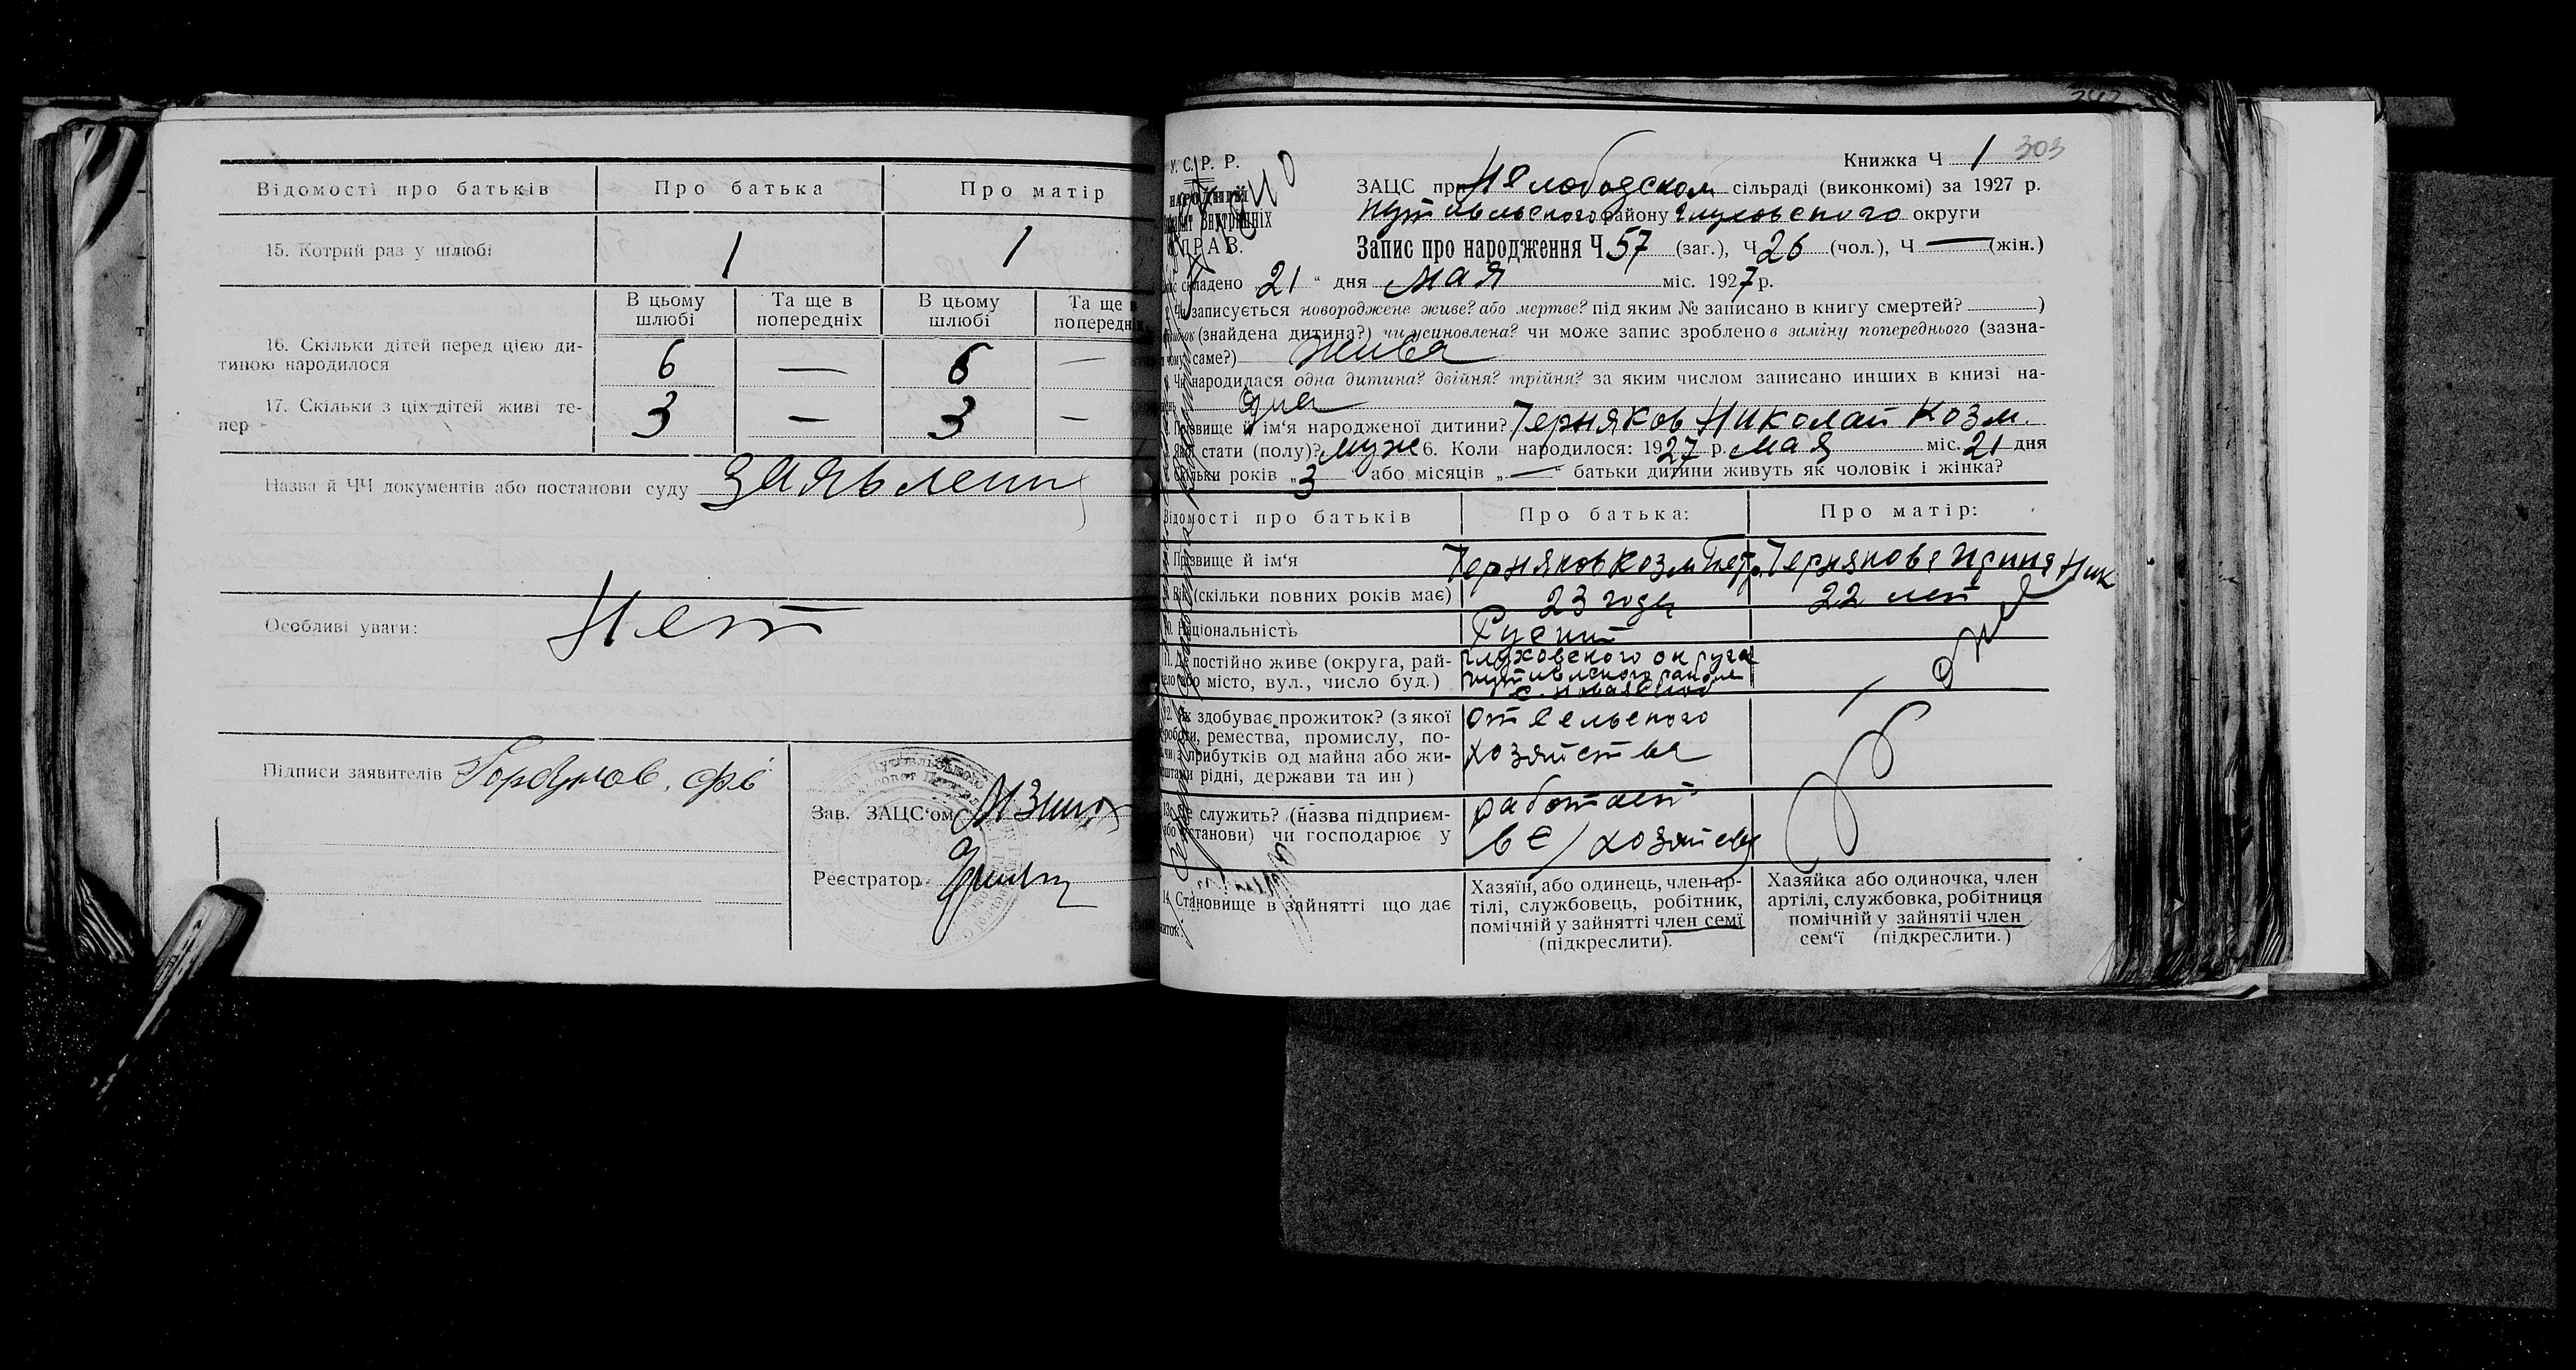 Відомості про батьків Про батька Про матір
15. Котрий раз у шлюбі 1 1
В цьому шлюбі Та ще в попередніх В цьому шлюбі Та ще в попередніх
16. Скільки дітей перед цією ди-
тиною народилося 6 — 6 —
17. Скільки з ціх дітей живі те-
пер 3 — 3 —
Назва й ЧЧ документів або постанови суду заявлени
Особливі уваги: Нет
Підписи заявителів Горбунов
Зав. ЗАЦС'ом
Реєстратор
У. С. Р. Р.
Книжка Ч 1 303
ЗАЦС при Н Слободском сільраді (виконкомі) за 1927 р.
Путивльского району Глуховского округи
Запис про народження Ч 57 (заг.), Ч 26 (чол.), Ч — (жін.)
складено 21 " дня мая міс. 1927 р.
Чи записується новороджене живе? або мертве? під яким № записано в книгу смертей? )
(знайдена дитина?) чи усиновлена? чи може запис зроблено в заміну попереднього (зазна-
саме?) жива
Чи народилася одна дитина? двійня? трійня? за яким числом записано инших в книзі на-
одна
Прізвище й ім'я народженої дитини? Черняков Николай Козм.
стати (полу)? муж 6. Коли народилося: 1927 р. мая міс. 21 дня
Скільки років „ 3 " або місяців „ — " батьки дитини живуть як чоловік і жінка?
Відомості про батьків Про батька: Про матір:
Прізвище й ім'я Черняков Козм Петр. Чернякова Ирина Ник
9. Вік (скільки повних років має) 23 года 22 лет
10. Національність Руский
11. Де постійно живе (округа, рай-
або місто, вул., число буд.) Глуховского округа
Путивлского района
с. Новая Слобод
12. Як здобуває прожиток? (з якої
роботи, ремества, промислу, по-
прибутків од майна або жи-
рідні, держави та ин) от сельского
хозяйства
13. Де служить? (назва підприєм-
або установи) чи господарює у работает
в с/хозяйстве
14. Становище в зайнятті що дає
Хазяїн, або одинець, член ар-
тілі, службовець, робітник,
помічній у зайнятті член семї
(підкреслити).
Хазяйка або одиночка, член
артілі, службовка, робітниця
помічній у зайнятіі член
сем'ї (підкреслити.)